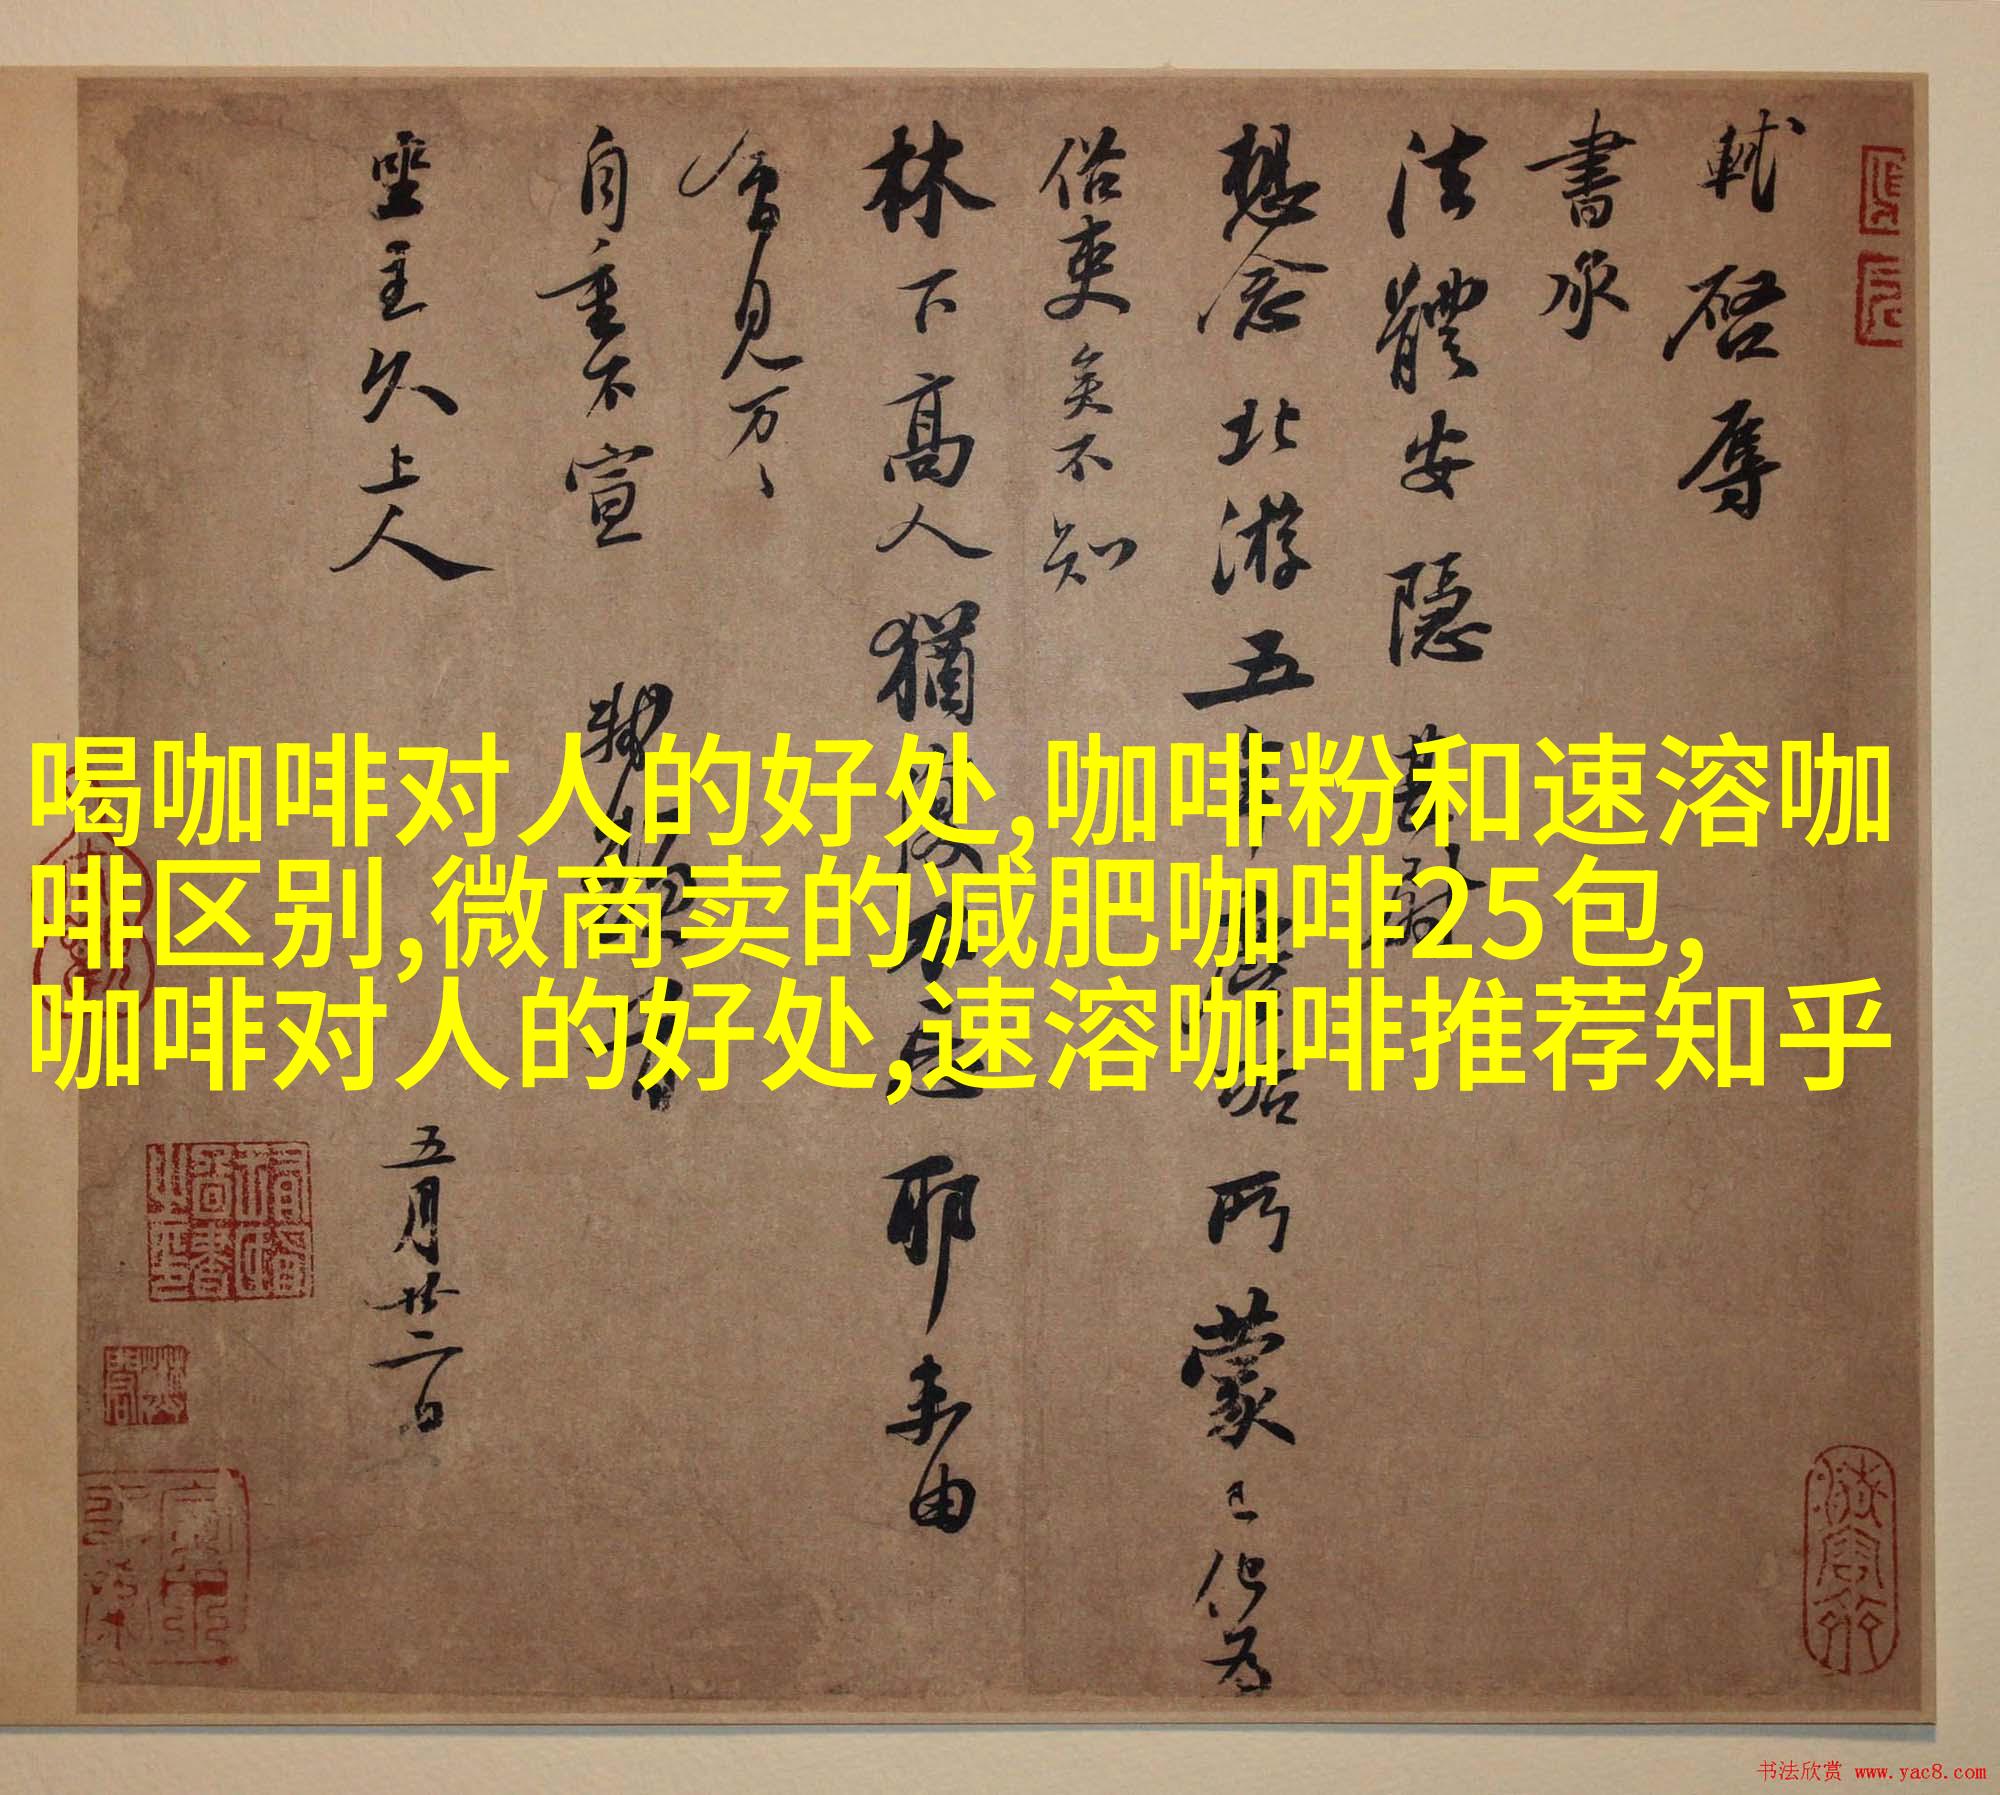 軾啓辱
書承
法體安隱甚慰
想念北游五年
所蒙已化為
俗吏矣不知
林下高人猶復不忘耶未由
會見万万
自重不宣
軾頓首
坐主久上人
五月廿二日
喝咖啡对人的好处,咖啡粉和速溶咖
啡区别,微商卖的减肥咖啡25包,
咖啡对人的好处,速溶咖啡推荐知乎
书法欣赏 www.yac8.com